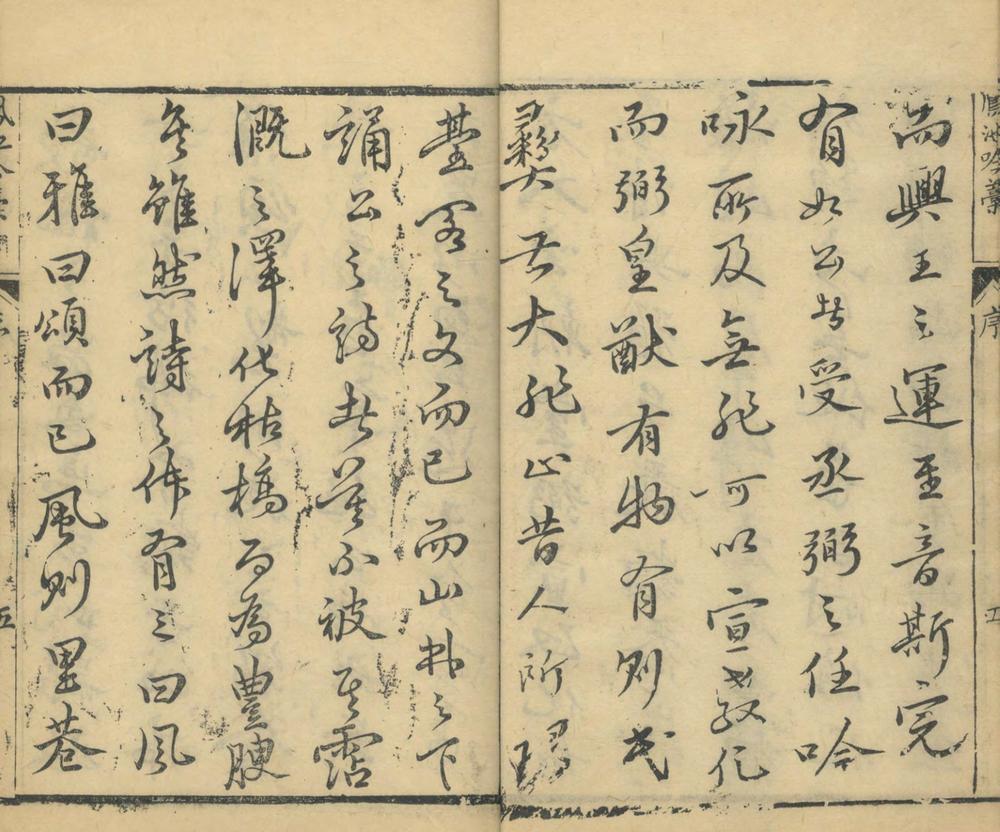 而興王之運至音斯完
有如公者受丞弼之任吟
咏所及無非可以宣教化
而弼皇猷有物有則民
彝者大非止昔人所
臺閣之文而已而山林之下
誦公之詩者莫不被其霑
溉之澤化枯槁而為豊腴
矣雖然詩之作有三曰風
曰雅曰頌而已風則里巷
鳳池吟藁
序
五
五